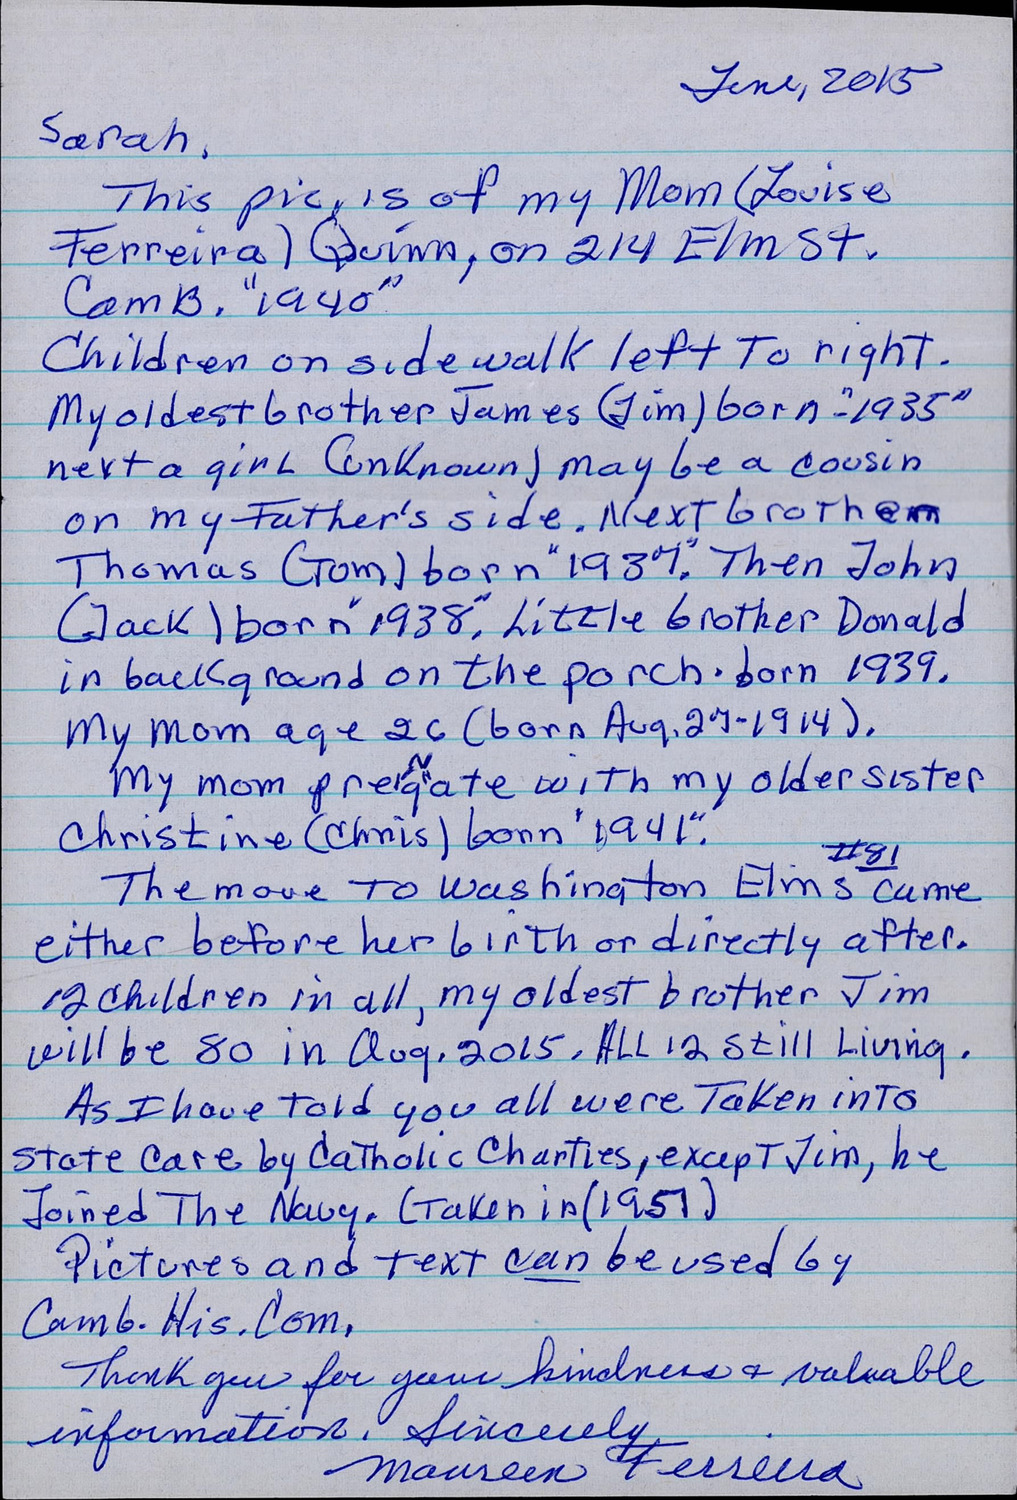 June, 2015
Sarah,
This pic, is of my Mom (Louise
Ferreira) Quinn, on 214 Elm St.
CamB. "1940"
Children on sidewalk left To right.
My oldest brother James (Jim) born "1935"
next a girl (unknown) may be a cousin
on my Father's side. Next brother
Thomas (Tom) born "1937". Then John
(Jack) born "1938". Little brother Donald
in background on the porch. born 1939.
My mom age 26 (born Aug. 27-1914).
My mom pregNate with my older sister
Christine (Chris) born "1941".
#81
The move To Washington Elms came
either before her birth or directly after.
12 children in all, my oldest brother Jim
will be 80 in Aug. 2015. ALL 12 still Living.
As I have told you all were Taken inTo
state care by Catholic Charties, except Jim, he
Joined The Navy. (Taken in (1951)
Pictures and text can be used by
Camb. His. Com.
Thank you for your kindness & valuable
information. Sincerely,
Maureen Ferreira